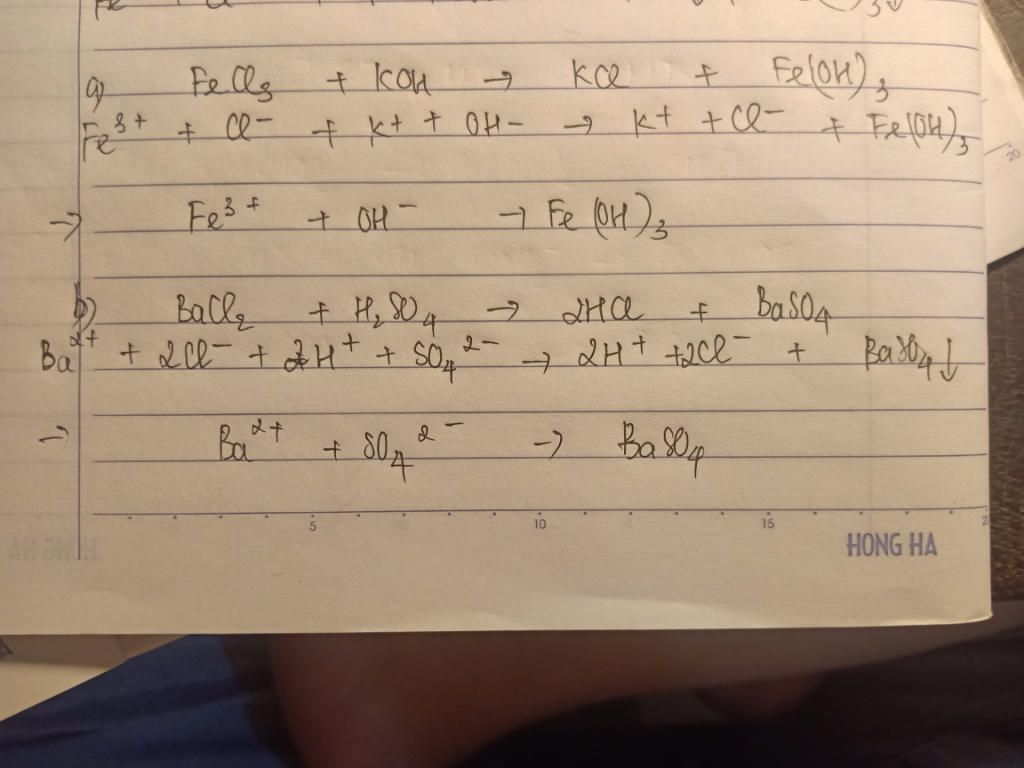 a) FeCl₃ + KOH → KCl + Fe(OH)₃
Fe³⁺ + Cl⁻ + K⁺ + OH⁻ → K⁺ + Cl⁻ + Fe(OH)₃
→ Fe³⁺ + OH⁻ → Fe(OH)₃
b) BaCl₂ + H₂SO₄ → 2HCl + BaSO₄
Ba²⁺ + 2Cl⁻ + 2H⁺ + SO₄²⁻ → 2H⁺ + 2Cl⁻ + BaSO₄↓
→ Ba²⁺ + SO₄²⁻ → BaSO₄
5 10 15
HONG HA
20